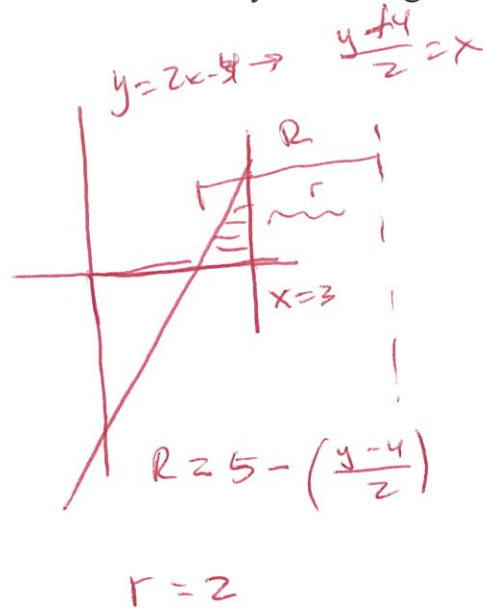 y=2x-4 → y+4/2 = x
R
r
x=3
R = 5 - (y-4/2)
r = 2